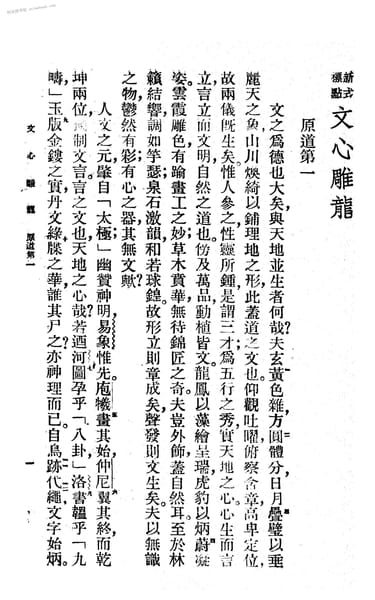 新式標點 文心雕龍
原道第一
文之爲德也大矣與天地並生者何哉?夫玄黃色雜方圓體分日月疊璧以垂
麗天之象山川煥綺以鋪理地之形此蓋道之文也仰觀吐曜俯察含章高卑定位
故兩儀既生矣惟人參之性靈所鍾是謂三才爲五行之秀實天地之心心生而言
立言立而文明自然之道也傍及萬品動植皆文龍鳳以藻繪呈瑞虎豹以炳蔚凝
姿雲霞雕色有踰畫工之妙草木賁華無待錦匠之奇夫豈外飾蓋自然耳至於林
籟結響調如竽瑟泉石激韻和若球鍠故形立則章成矣聲發則文生矣夫以無識
之物鬱然有彩有心之器其無文歟?
人文之元肇自「太極」幽贊神明易象惟先庖犧畫其始仲尼翼其終而乾
坤兩位獨制文言言之文也天地之心哉若迺河圖孕乎「八卦」洛書韞乎「九
疇」玉版金鏤之實丹文綠牒之華誰其尸之?亦神理而已自鳥跡代繩文字始炳
文心雕龍 原道第一
一